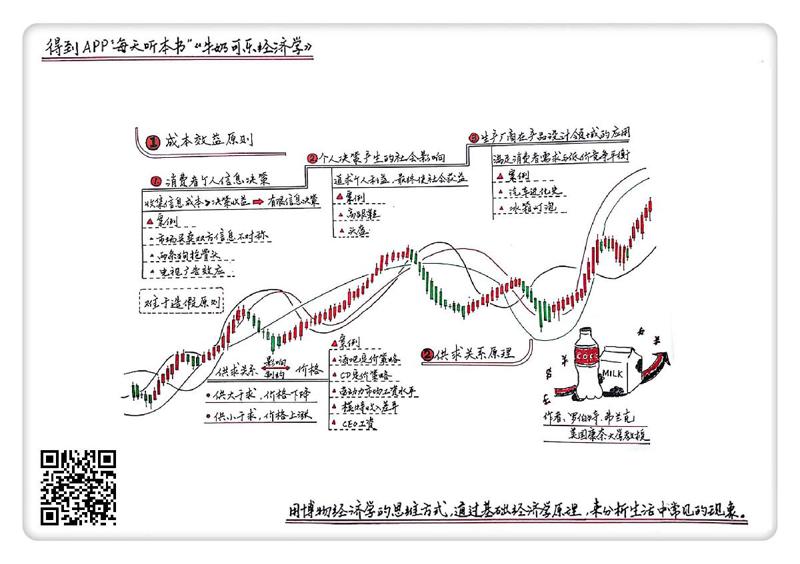 得到APP“每天听本书”《牛奶可乐经济学》
① 成本效益原则
① 消费者个人信息决策
收集信息成本>决策收益 ➡ 有限信息决策
▲ 案例
▲ 市场买卖双方信息不对称
▲ 两条狗抢骨头
▲ 电视广告效应
难于造假原则
② 个人决策产生的社会影响
追求个人利益,最终使社会获益
▲ 案例
▲ 高跟鞋
③ 生产厂商在产品设计领域的应用
满足消费者需求与低价竞争平衡
▲ 案例
▲ 汽车进化史
▲ 冰箱灯泡
② 供求关系原理
供求关系
影响
制约
价格
• 供大于求,价格下降
• 供小于求,价格上涨
▲ 案例
▲ 酒吧定价策略
▲ CD定价策略
▲ 劳动力市场工资水平
▲ 模特收入差异
▲ CEO工资
COCO
MILK
作者:罗伯特·弗兰克
美国康奈尔大学教授
用博物经济学的思维方式,通过基础经济学原理,来分析生活中常见的现象。